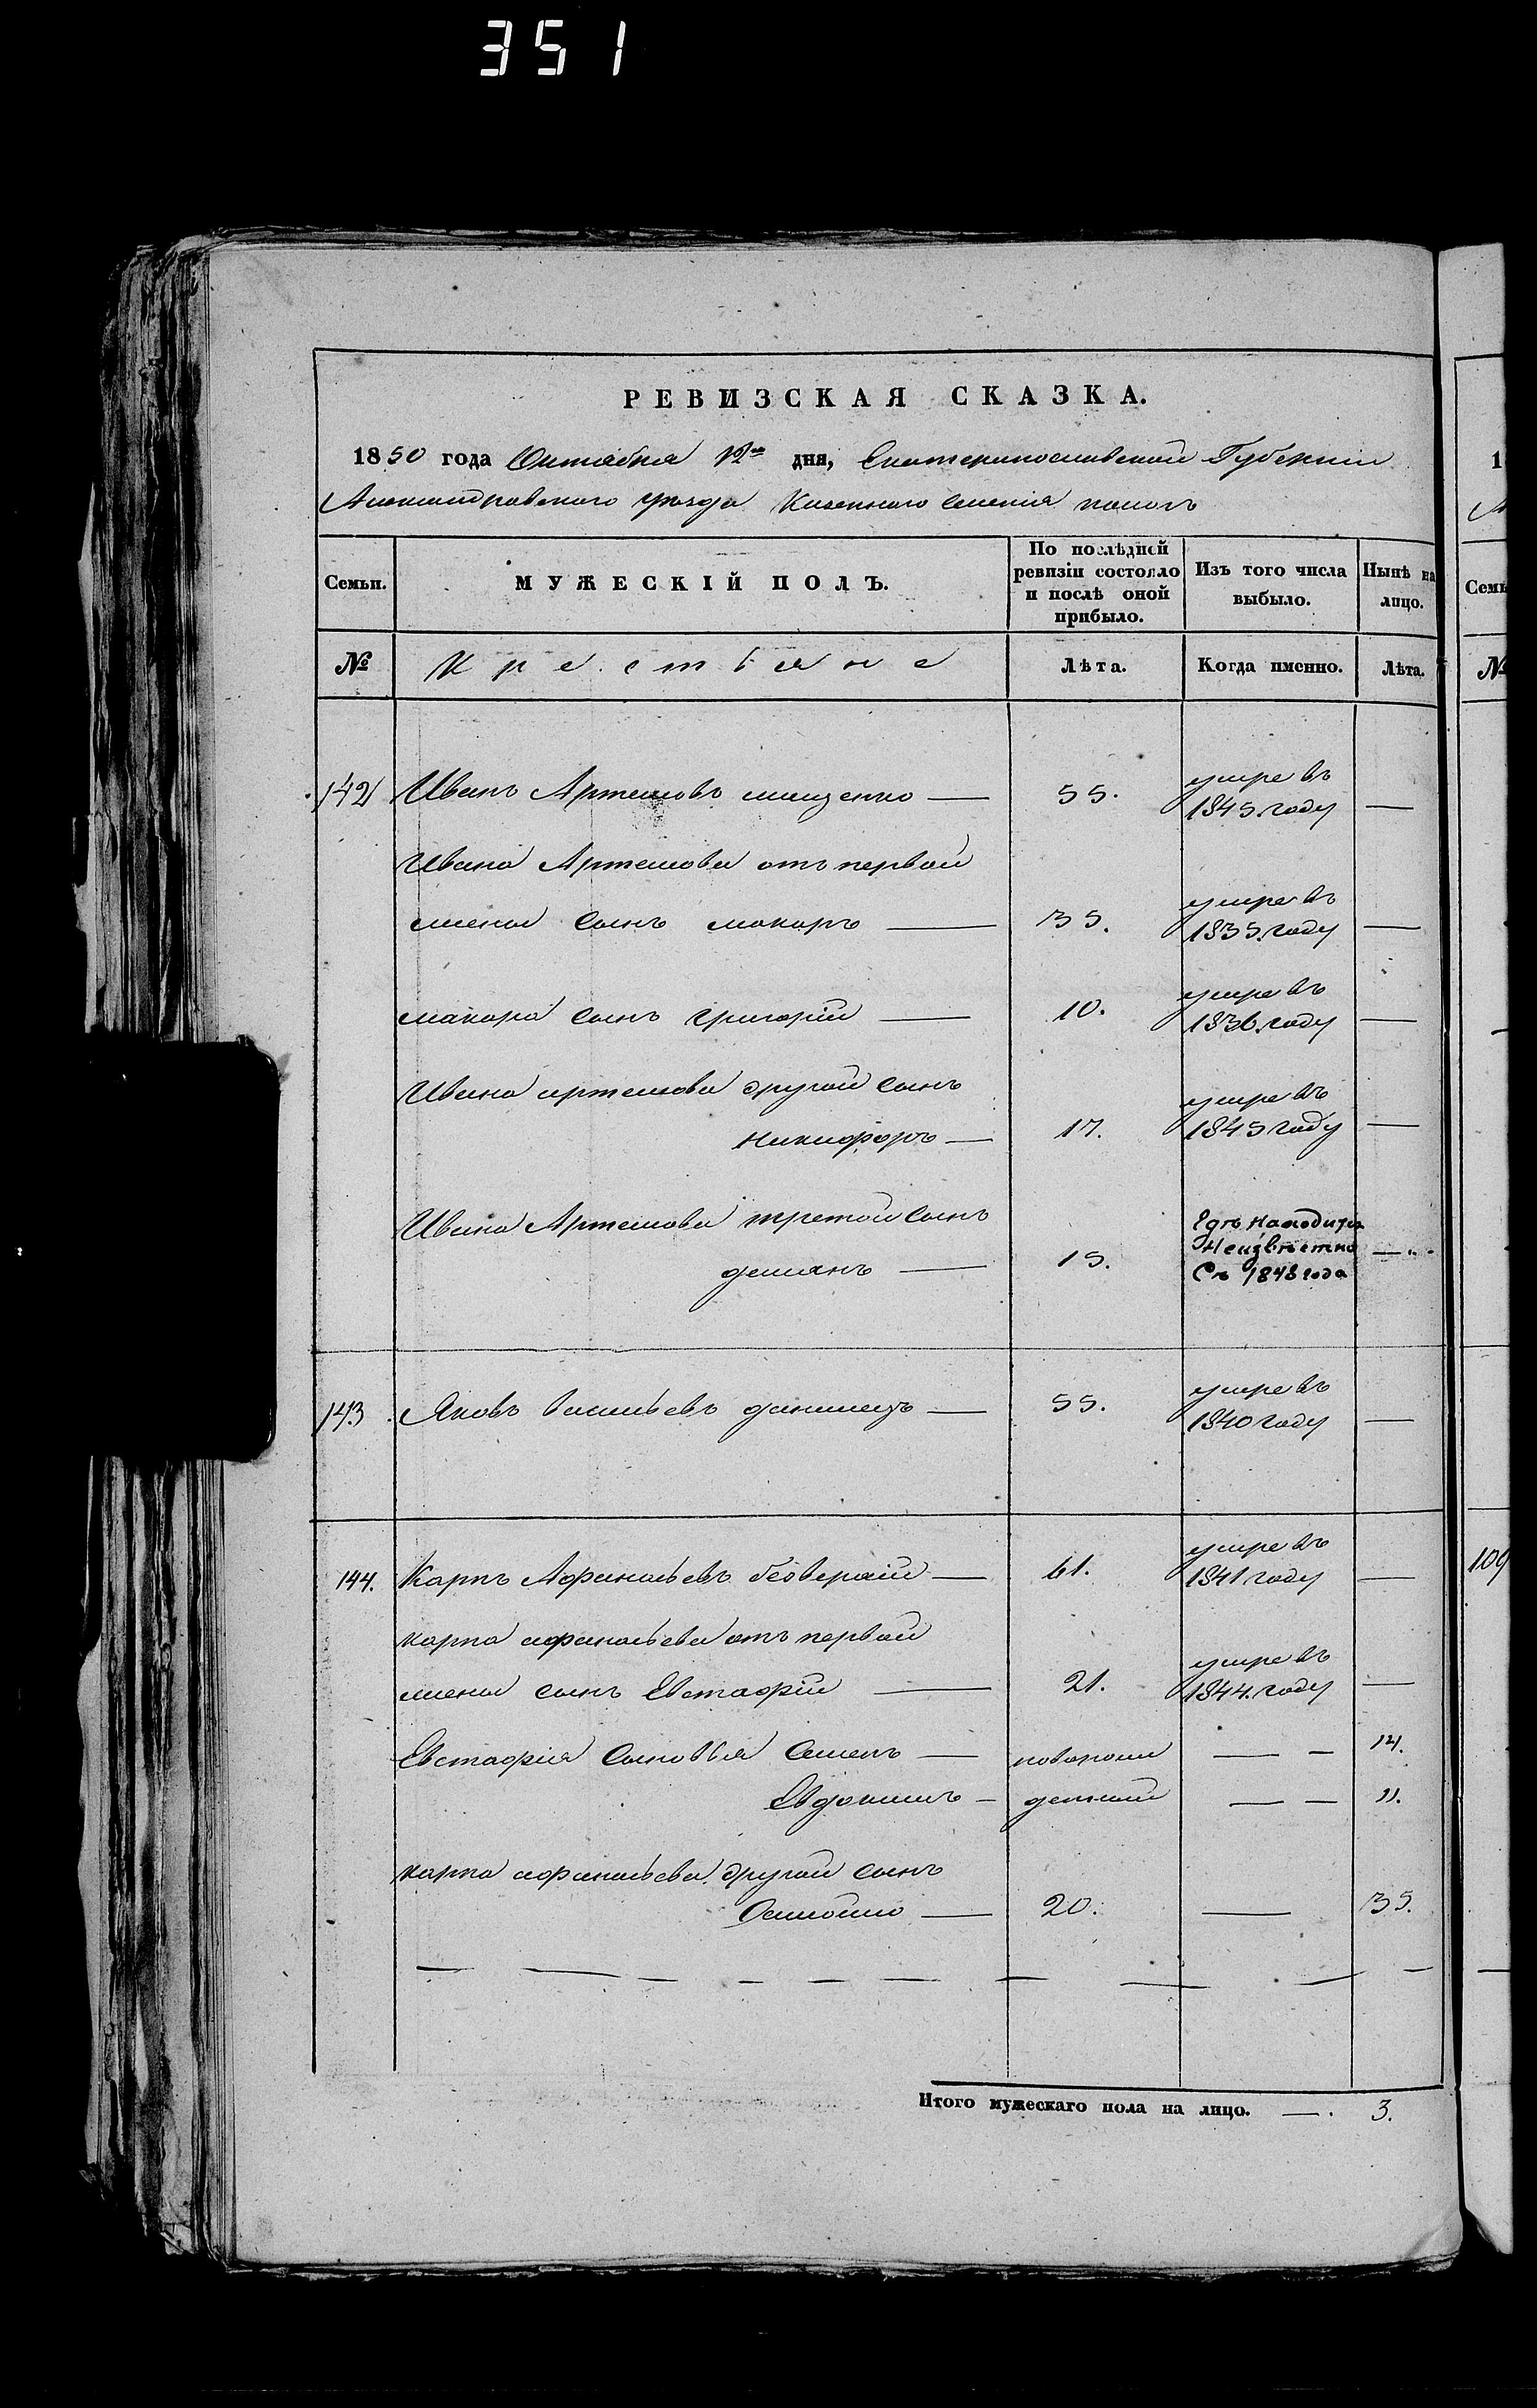 351
РЕВИЗСКАЯ СКАЗКА.
1850 года Октября 12го дня, Екатеринославской Губерніи
Александровского уѣзда Казенного селенія
Семьи.
МУЖЕСКІЙ ПОЛЪ.
По послѣдней ревизіи состояло и послѣ оной прибыло.
Изъ того числа выбыло.
Нынѣ на лицо.
№
Крестьяне
Лѣта.
Когда именно.
Лѣта.
142 Иванъ Артемовъ мищенко — 55. умре въ 1845. году —
Ивана Артемова отъ первой
жены сынъ макаръ — 35. умре въ 1835. году —
макара сынъ григорій — 10. умре въ 1836. году —
Ивана артемова другой сынъ
никифоръ — 17. умре въ 1845 году —
Ивана Артемова третой сынъ
демянъ — 15. Гдѣ находится Неизвѣстно Съ 1848 года —
143 Яковъ васильевъ — 55. умре въ 1840 году —
144. Карпъ Афанасьевъ — 61. умре въ 1841 году —
карпа афанасьева отъ первой
жены сынъ Евстафій — 21. умре въ 1844. году —
Евстафія сыновья Семенъ — новорож — — 14.
Евдокимъ — денний — — 11.
карпа афанасьева другой сынъ
Самойло — 20. — 35.
Итого мужескаго пола на лицо. — . 3.
1
Семь
№
109